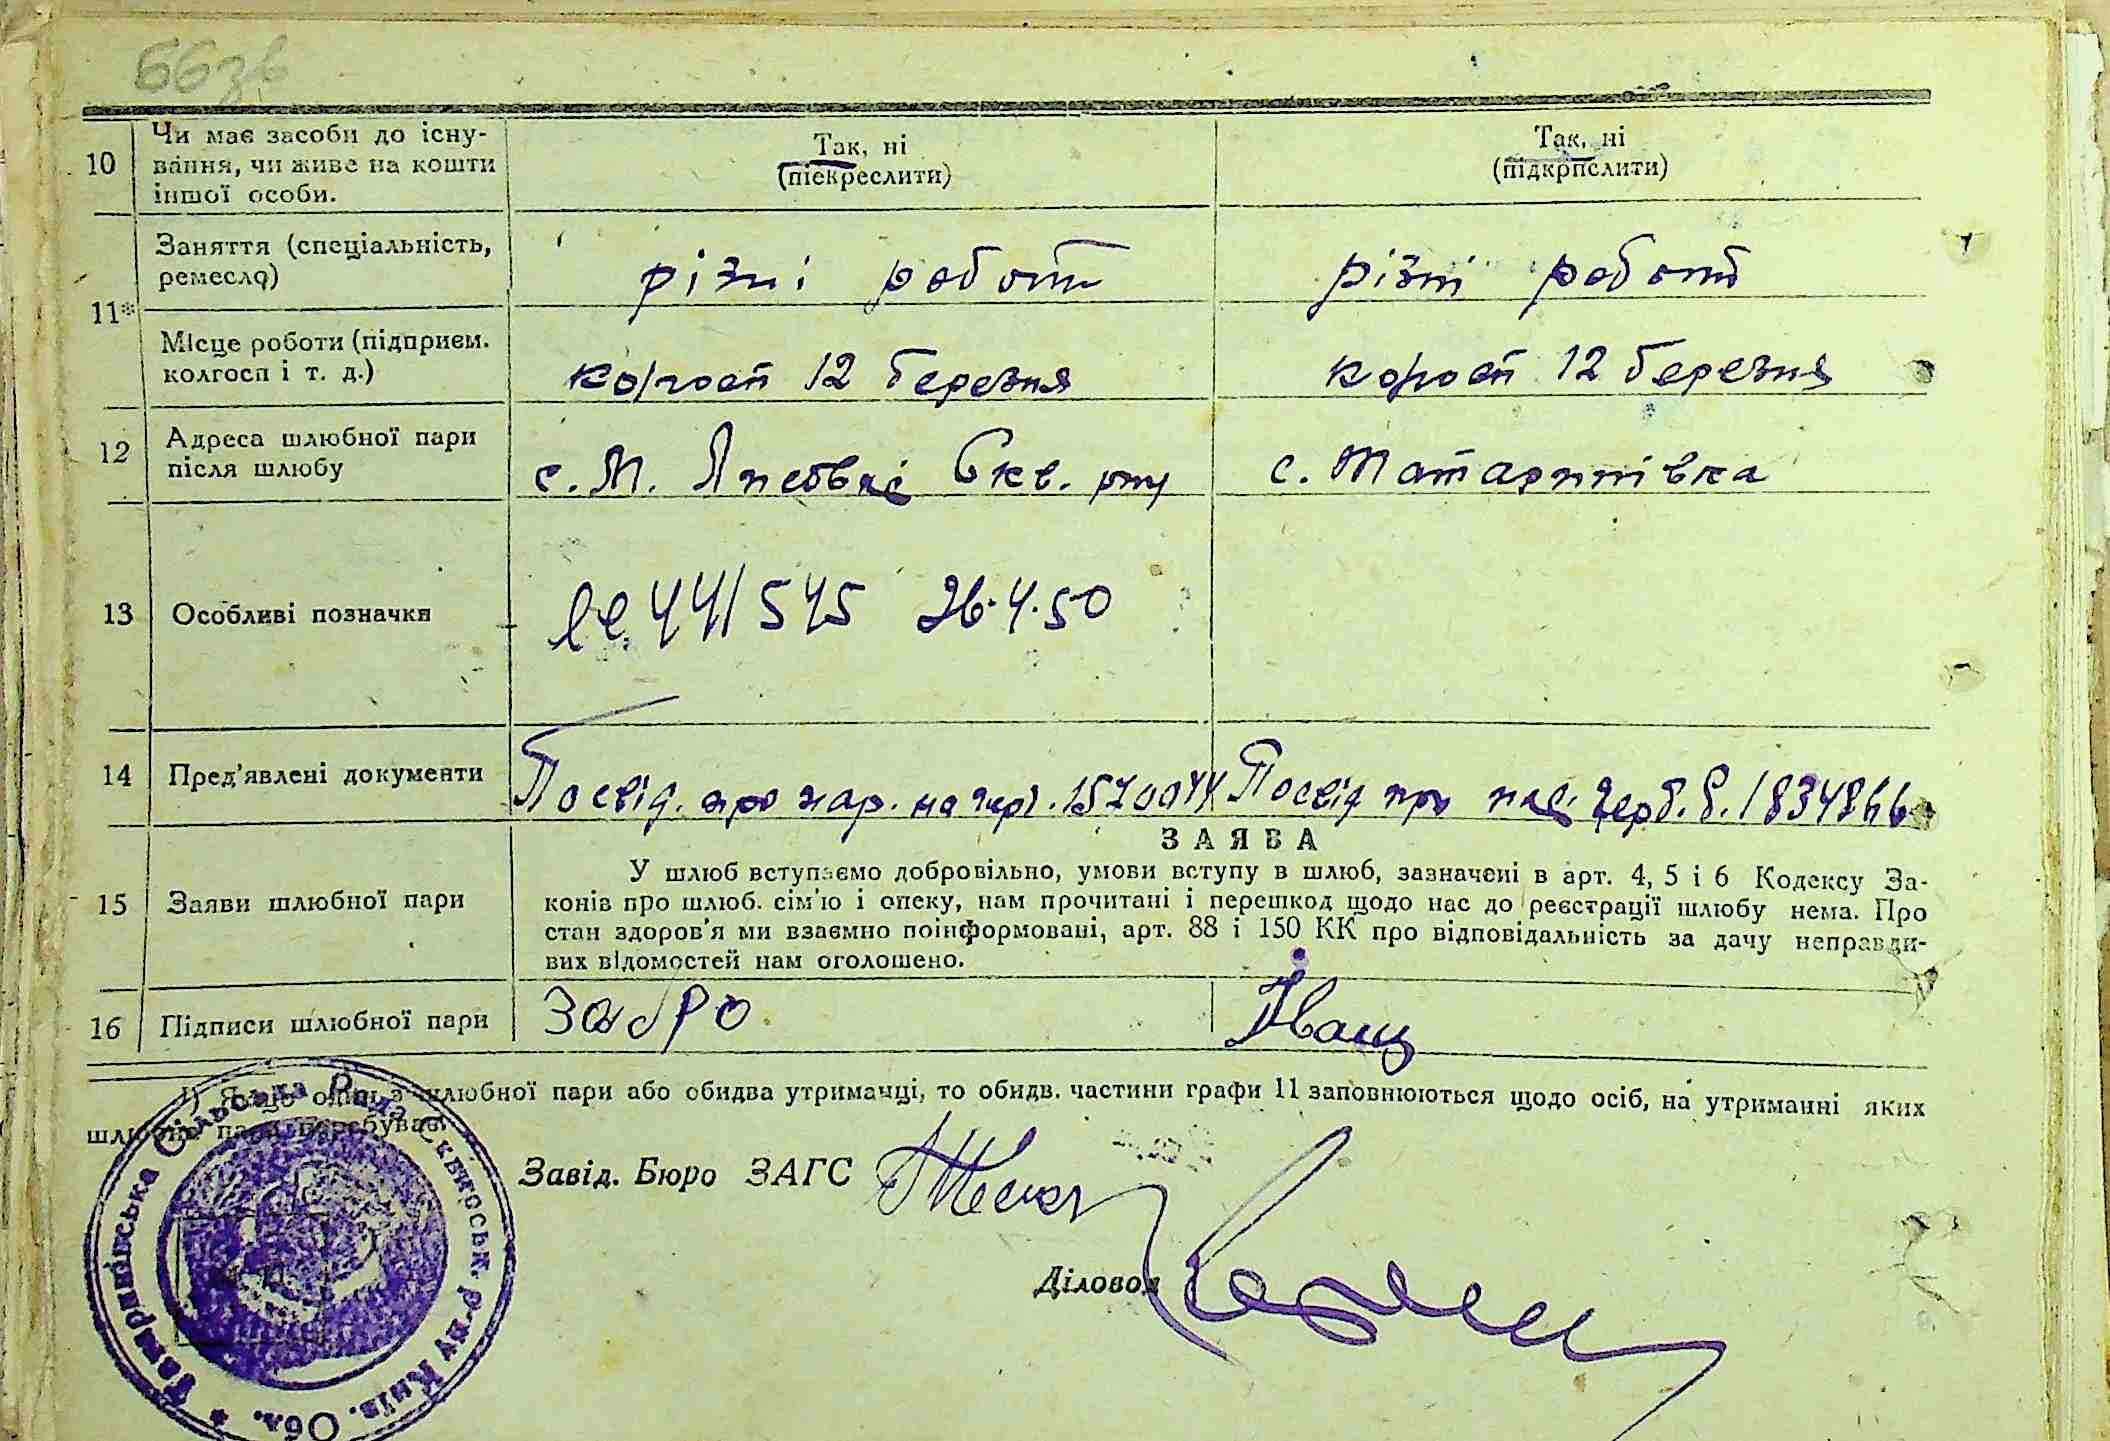 66зв
10 Чи має засоби до існу-
вання, чи живе на кошти
іншої особи.
Так, ні
(піекреслити)
Так, ні
(підкрпслити)
11* Заняття (спеціальність,
ремесло)
різні роботи
різні роботи
Місце роботи (підприєм.
колгосп і т. д.)
колгосп 12 березня
колгосп 12 березня
12 Адреса шлюбної пари
після шлюбу
с. М. Скв. р-ну
с. Татаринівка
13 Особливі позначки
441545 26.4.50
14 Пред'явлені документи
Посвід. про нар. на 1570044
Посвід про 1834866
15 Заяви шлюбної пари
ЗАЯВА
У шлюб вступаємо добровільно, умови вступу в шлюб, зазначені в арт. 4, 5 і 6 Кодексу За-
конів про шлюб. сім'ю і опеку, нам прочитані і перешкод щодо нас до реєстрації шлюбу нема. Про
стан здоров'я ми взаємно поінформовані, арт. 88 і 150 КК про відповідальність за дачу неправди-
вих відомостей нам оголошено.
16 Підписи шлюбної пари
Іващ
1) Якщо один з шлюбної пари або обидва утриманці, то обидв. частини графи 11 заповнюються щодо осіб, на утриманні яких
шлюбна пара перебуває
Завід. Бюро ЗАГС
Діловод
Татаринівська Сільська Рада Сквирськ. р-ну Київ. Обл.